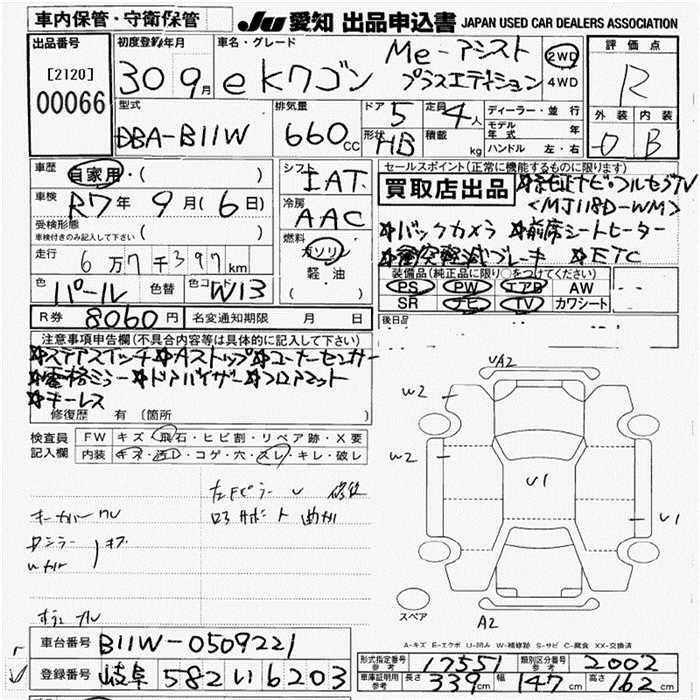 車内保管・守衛保管
JU 愛知 出品申込書 JAPAN USED CAR DEALERS ASSOCIATION
出品番号
[2120]
00066
初度登録年月
30 9月
車名・グレード
eKワゴン Me-アシスト
プラスエディション
2WD
4WD
評価点
R
外装 内装
D B
型式
DBA-B11W
排気量
660cc
ドア 5
形状 HB
定員 4人
積載 kg
ディーラー・並行
モデル年式 年
ハンドル 左・右
車歴 自家用・( )
車検 R7年9月(6日)
受検形態
車検付きのみ記入して下さい ( )
走行 6万7千397km
色 パール 色替 色コード W13
シフト IAT
冷房 AAC
燃料 ガソリン
軽・油
( )
セールスポイント(正常に機能するものに限ります)
買取店出品
☆純正ナビ・フルセグTV
<MJ118D-WM>
☆バックカメラ ☆前席シートヒーター
☆衝突軽減ブレーキ ☆ETC
装備品(純正品に限り○をつけてください)
PS PW エアB AW
SR ナビ TV カワシート
後日品
R券 8060円 名変通知期限 月 日
注意事項申告欄(不具合内容等は具体的に記入して下さい)
☆ステアスイッチ ☆Aストップ ☆コーナーセンサー
☆電格ミラー ☆ドアバイザー ☆フロアマット
☆キーレス
修復歴 有 (箇所 )
検査員記入欄
FW キズ・飛石・ヒビ割・リペア跡・X要
内装 キズ・汚レ・コゲ・穴・スレ・キレ・破レ
左Fピラー U 修復
コアサポート 曲り
UA2
W2
W2
U1
U1
A2
スペア
A-キズ E-エクボ U-凹み W-補修跡 S-サビ C-腐食 XX-交換済
車台番号 B11W-0509221
登録番号 岐阜 582 い 6203
型式指定番号 参考 17551 類別区分番号 参考 2002
車庫証明用 参考 長さ 339cm 幅 147cm 高さ 162cm